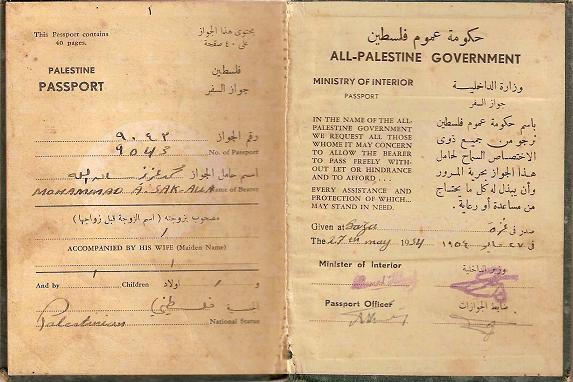 ١
This Passport contains
40 pages.
يحتوي هذا الجواز
على ٤٠ صفحة
PALESTINE
PASSPORT
فلسطين
جواز السفر
٩٠٤٣
رقم الجواز
9043
No. of Passport
اسم حامل الجواز
MOHAMMAD A. SAK-ALLA
Name of Bearer
مصحوب بزوجته (اسم الزوجة قبل زواجها)
ACCOMPANIED BY HIS WIFE (Maiden Name)
And by
Children
اولاد
و
فلسطيني
الجنسية
Palestinian
National Status
حكومة عموم فلسطين
ALL-PALESTINE GOVERNMENT
MINISTRY OF INTERIOR
PASSPORT
وزارة الداخلية
جواز السفر
IN THE NAME OF THE ALL-
PALESTINE GOVERNMENT
WE REQUEST ALL THOSE
WHOME IT MAY CONCERN
TO ALLOW THE BEARER
TO PASS FREELY WITH-
OUT LET OR HINDRANCE
AND TO AFFORD ...
EVERY ASSISTANCE AND
PROTECTION OF WHICH...
MAY STAND IN NEED.
باسم حكومة عموم فلسطين
نرجو من جميع ذوى
الاختصاص السماح لحامل
هذا الجواز بحرية المرور
وأن يبذل له كل ما يحتاج
من مساعدة أو رعاية .
Given at Gaza
صدر فى غزة
The 27th may 1954
فى ٢٧ مايو ١٩٥٤
Minister of Interior
وزير الداخلية
Passport Officer
ضابط الجوازات